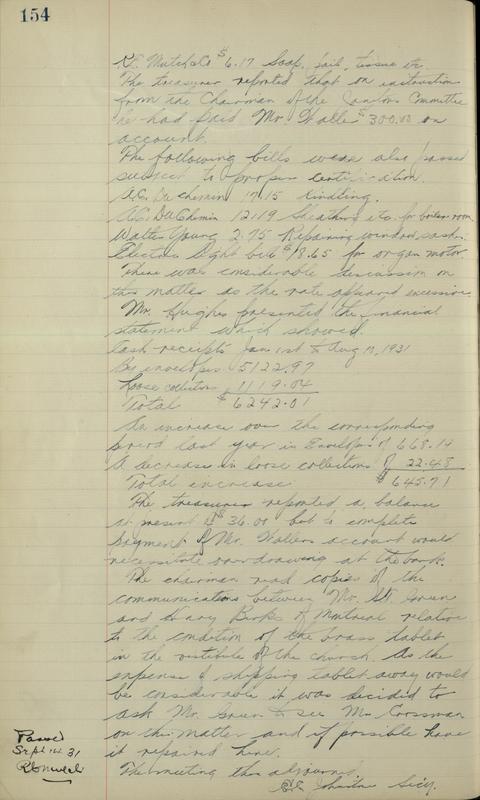 154
$6.17 Soap, pail, tissue etc.
The treasurer reported that on instruction
from the Chairman of the Janitors Committee
he had paid Mr. $300.00 on
account.
The following bills were also passed
subject to proper certification.
A.C. DuChemin 17.15 Kindling.
A.C. DuChemin 12.19 Sheathing etc. for boiler room
Walter Young 2.75 Repairing window sash.
Electric Light bill $18.65 for organ motor.
There was considerable discussion on
this matter as the rate appeared excessive.
Mr. Hughes presented the financial
statement which showed.
Cash receipts Jan 1st to Aug 17, 1931
By envelopes 5122.97
Loose collections 1119.04
Total $6242.01
An increase over the corresponding
period last year in Envelopes of 668.19
A decrease in loose collections of 22.48
Total increase $645.71
The treasurer reported a balance
at present of $36.01 but to complete
payment of Mr. account would
necessitate overdrawing at the bank.
The chairman read copies of the
communications between Mr. Green
and Henry Birks of Montreal relative
to the condition of the brass tablet
in the vestibule of the church. As the
expense of shipping tablet away would
be considerable it was decided to
ask Mr. Green to see Mr. Crossman
on this matter and if possible have
it repaired here.
The meeting then adjourned.
Johnstone Secy.
Passed
Sept 14 31